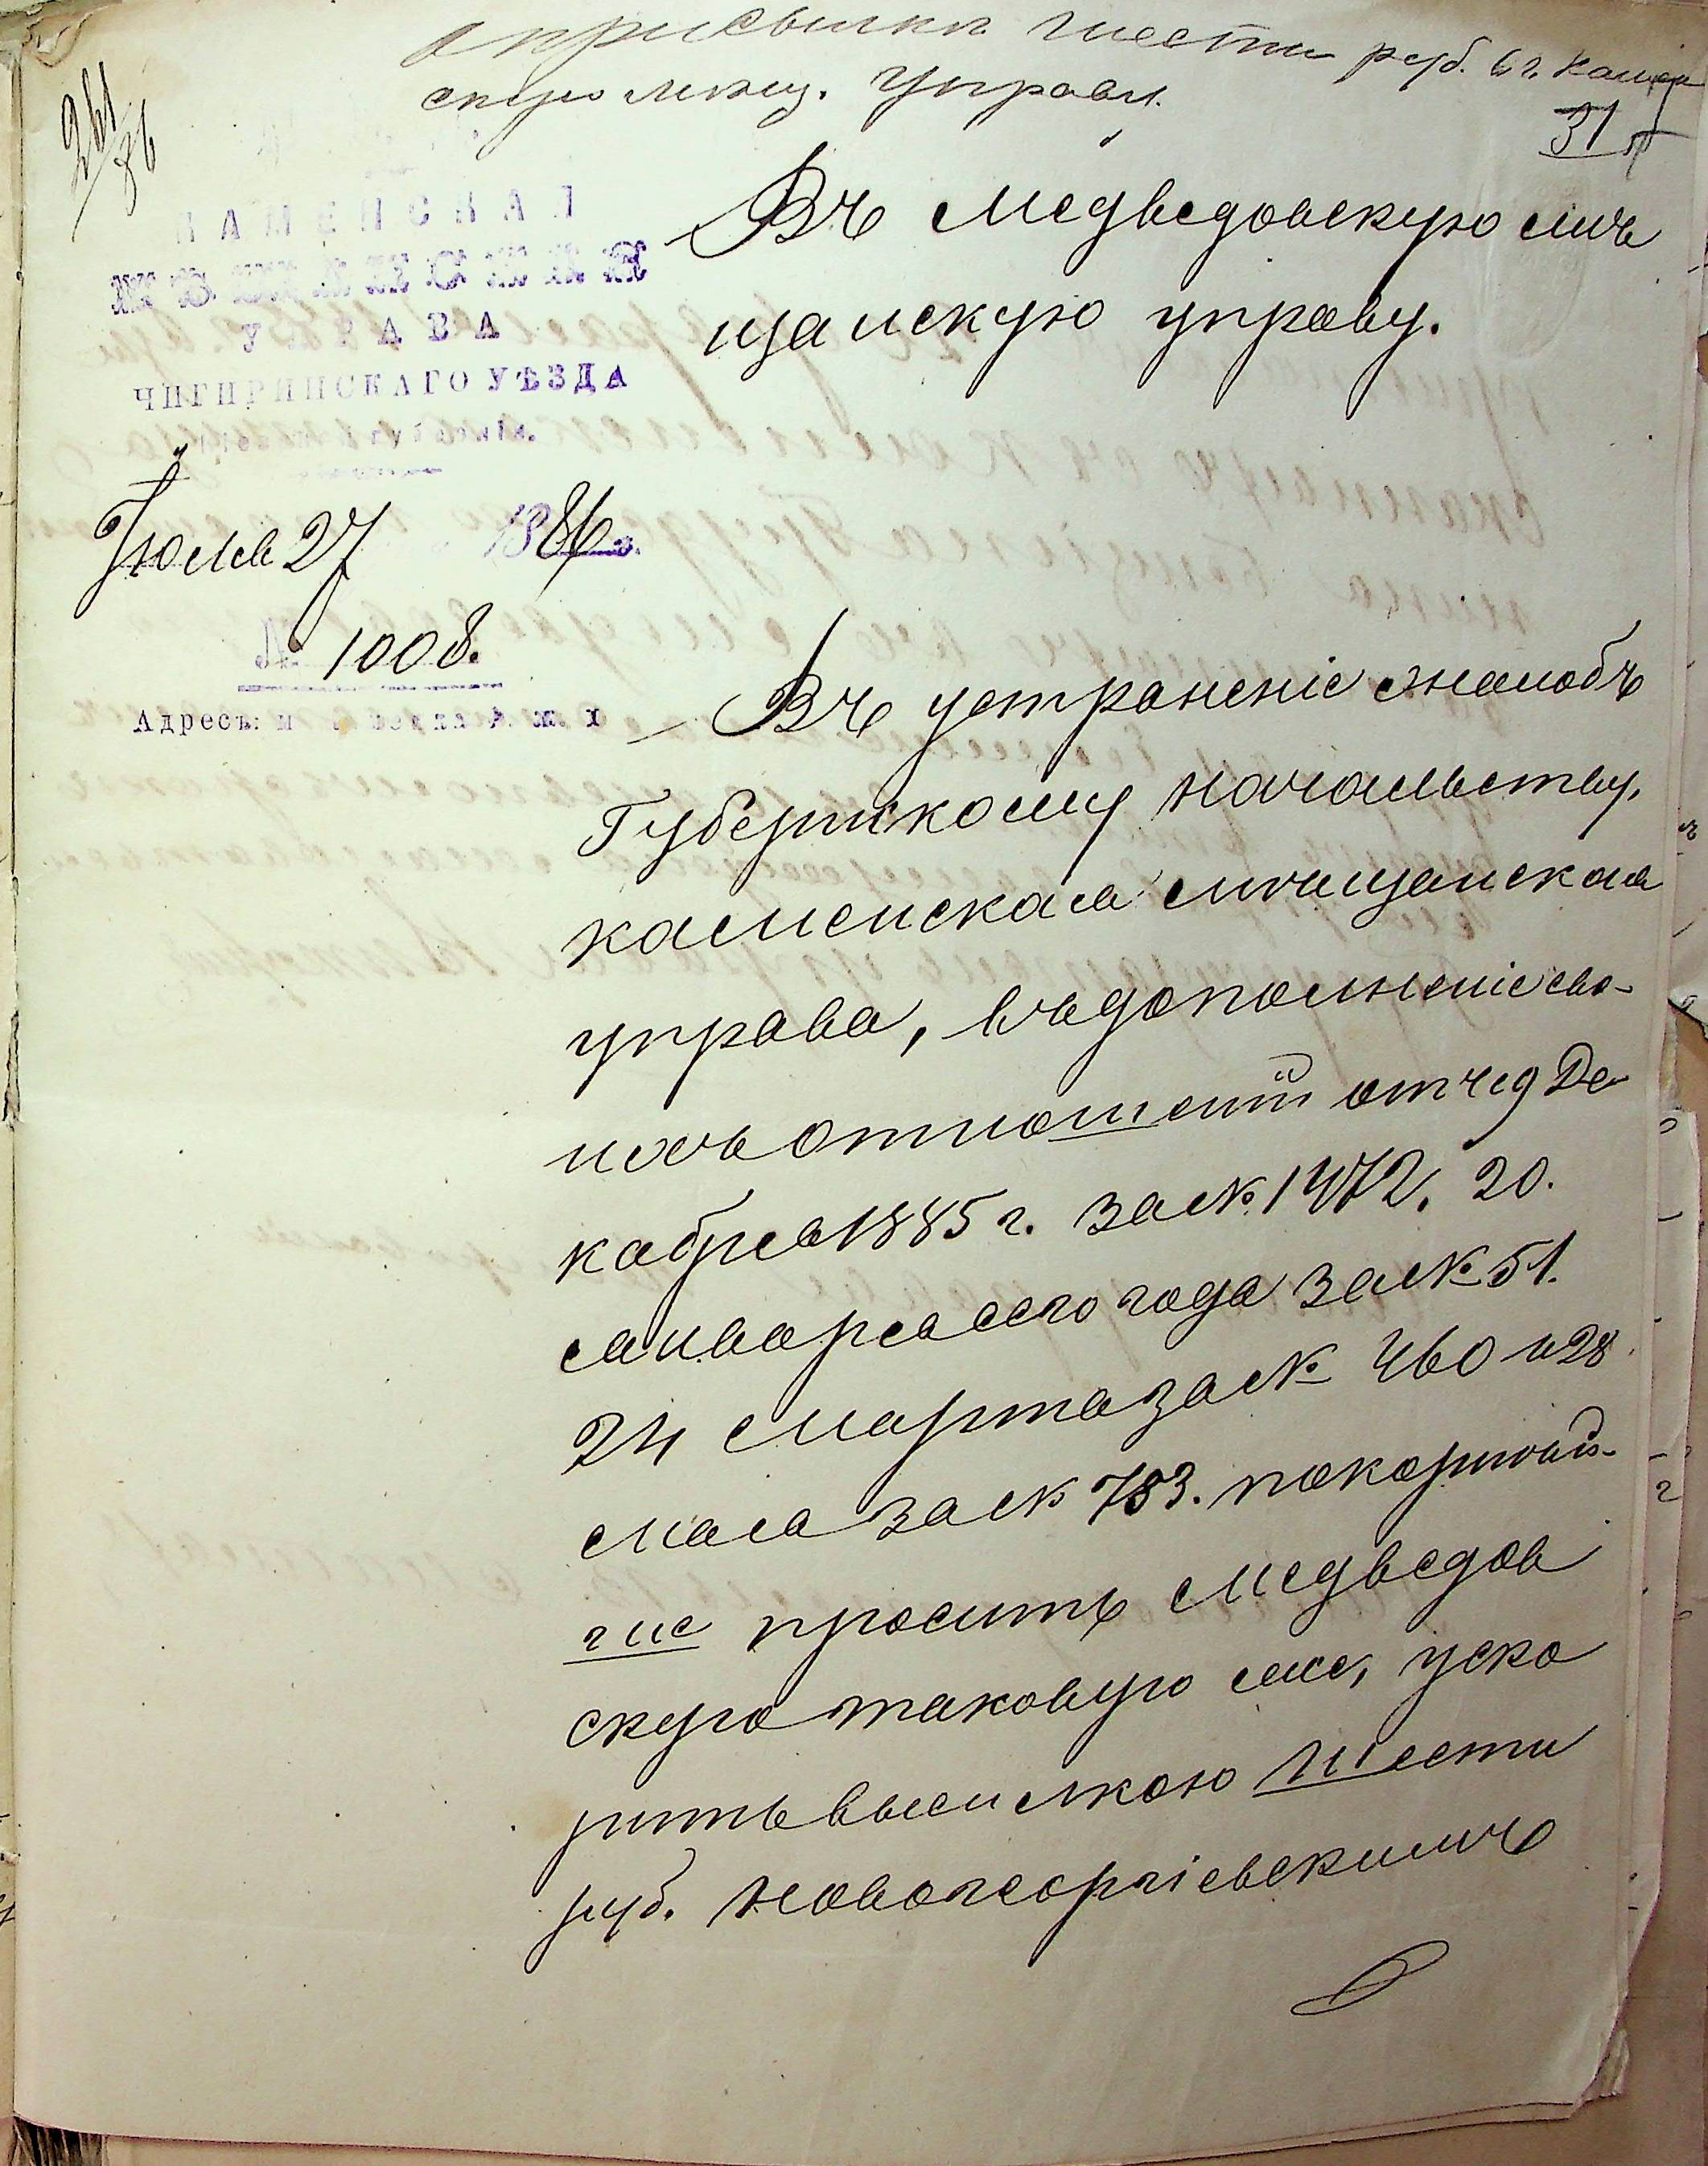 о присылки шести руб. въ Камен
скую мѣщ. управу.
261/86
31
КАМЕНСКАЯ
МѢЩАНСКАЯ
УПРАВА
ЧИГИРИНСКАГО УѢЗДА
Кіевской губерніи.
Іюля 27 1886 г.
№ 1008.
Адресъ: м
Въ Медведовскую мѣ
щанскую управу.
Въ устраненіе жалобъ
Губернскому начальству,
каменская мѣщанская
управа, въ дополненіе сво-
ихъ отношеній отъ 9 Де
кабря 1885 г. за № 1472, 20.
января сего года за № 51.
24 Марта за № 460 и 28
Мая за № 783. покорнѣй-
ше просить Медведов
скую таковую же, уско
рить высылкою шести
руб. Новогеоргіевскимъ